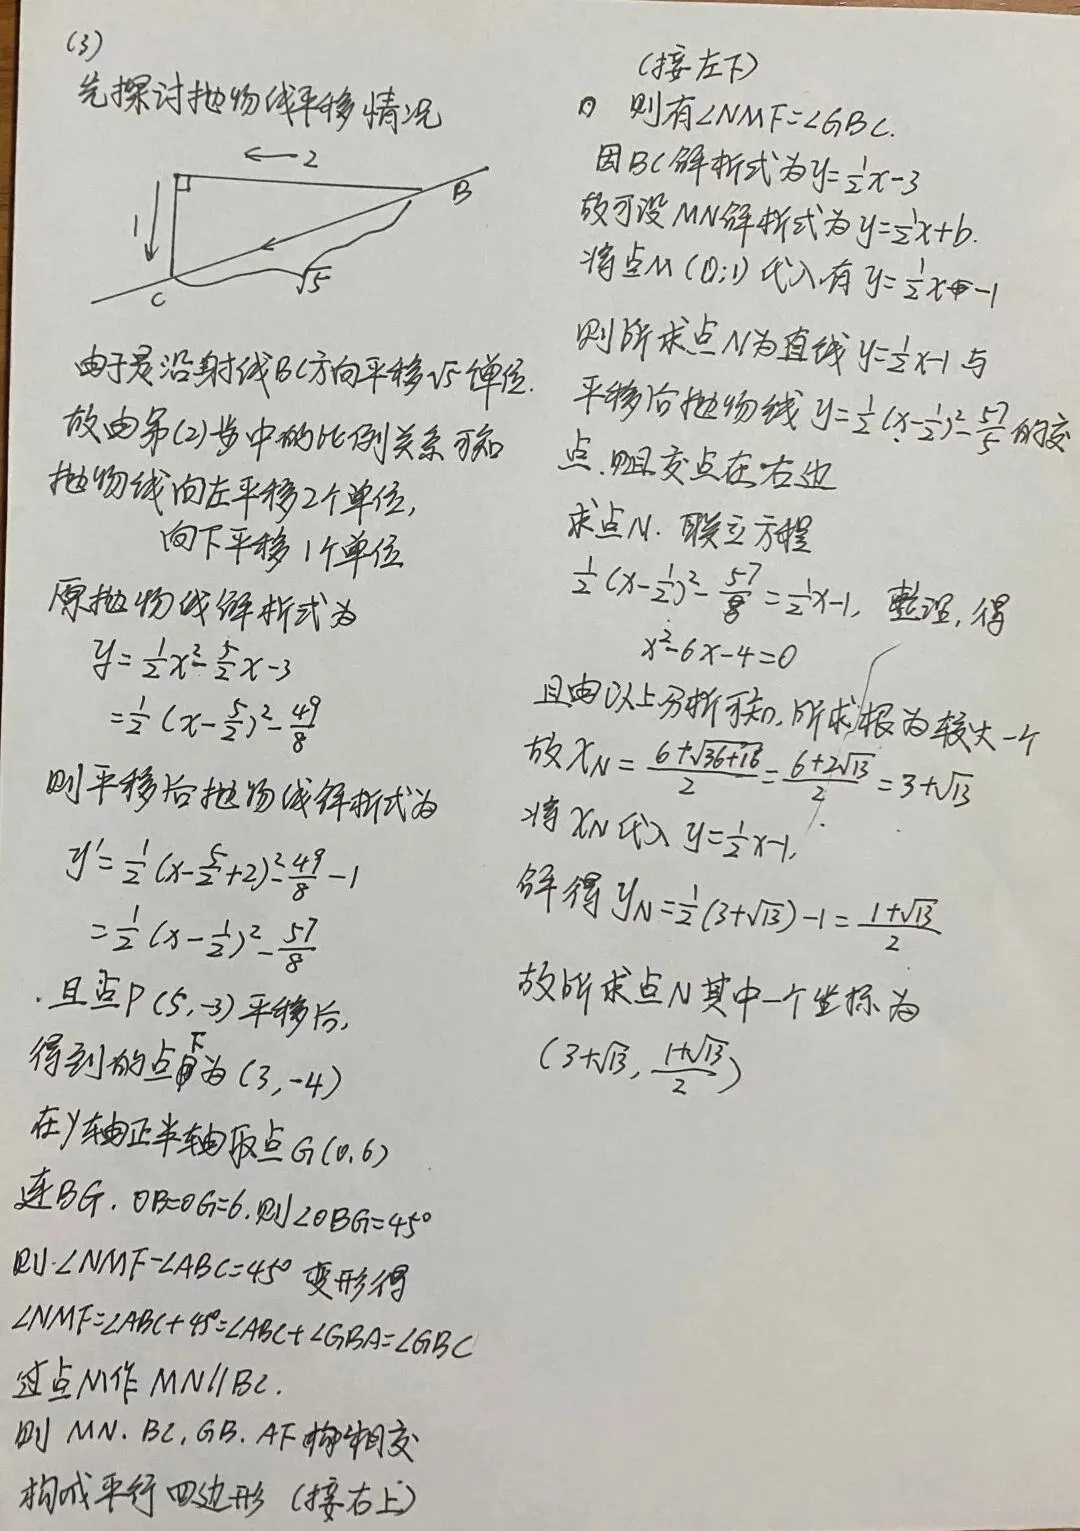 (3)
先探讨抛物线平移情况
←2
1
B
C
√5
由于是沿射线BC方向平移√5个单位.
故由第(2)步中的比例关系可知
抛物线向左平移2个单位,
向下平移1个单位
原抛物线解析式为
y=½x²-5/2x-3
=½(x-5/2)²-49/8
则平移后抛物线解析式为
y'=½(x-5/2+2)²-49/8-1
=½(x-½)²-57/8
且点P(5,-3)平移后,
得到的点F为(3,-4)
在y轴正半轴取点G(0,6)
连BG. OB=OG=6.则∠OBG=45°
则∠NMF-∠ABC=45° 变形得
∠NMF=∠ABC+45°=∠ABC+∠GBA=∠GBC
过点M作MN//BC.
则 MN、BC、GB、AF 相交
构成平行四边形 (接右上)
(接左下)
则有∠NMF=∠GBC.
因BC解析式为y=½x-3
故可设MN解析式为y=½x+b.
将点M(0;1)代入有y=½x-1
则所求点N为直线y=½x-1与
平移后抛物线y=½(x-½)²-57/5的交
点.且交点在右边
求点N.联立方程
½(x-½)²-57/8=½x-1, 整理,得
x²-6x-4=0
且由以上分析可知,所求根为较大一个
故xN=(6+√36+16)/2=(6+2√13)/2=3+√13
将xN代入y=½x-1,
解得yN=½(3+√13)-1=(1+√13)/2
故所求点N其中一个坐标为
(3+√13, (1+√13)/2)